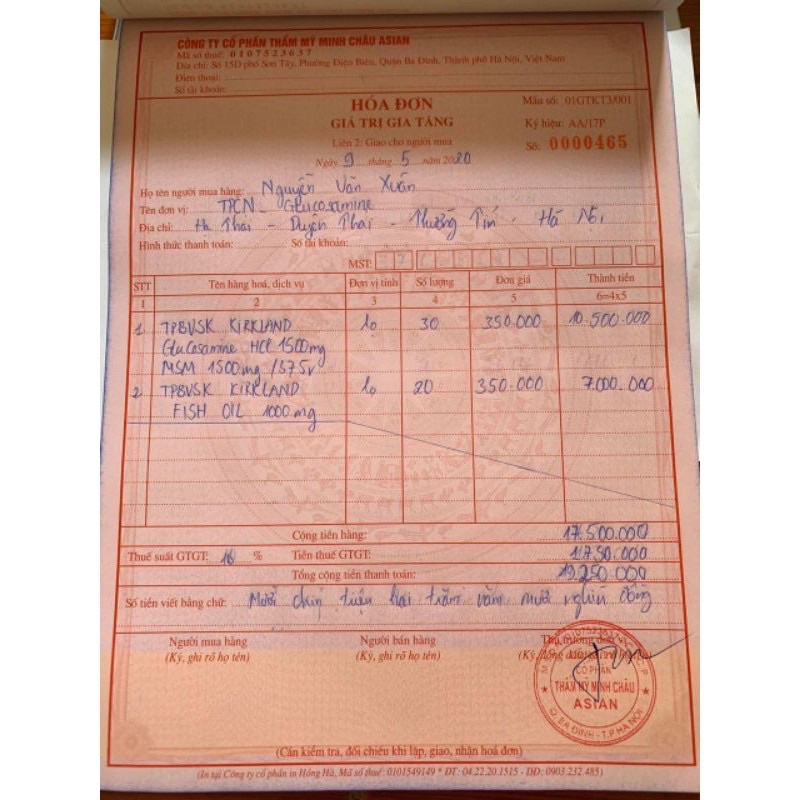 CÔNG TY CỔ PHẦN THẨM MỸ MINH CHÂU ASIAN
Mã số thuế: 0107523637
Địa chỉ: Số 15D phố Sơn Tây, Phường Điện Biên, Quận Ba Đình, Thành phố Hà Nội, Việt Nam
Điện thoại:
Số tài khoản:
HÓA ĐƠN
GIÁ TRỊ GIA TĂNG
Liên 2: Giao cho người mua
Ngày 9 tháng 5 năm 2020
Mẫu số: 01GTKT3/001
Ký hiệu: AA/17P
Số: 0000465
Họ tên người mua hàng: Nguyễn Văn Xuân
Tên đơn vị: TPCN - Glucosamine
Địa chỉ: Hạ Thái - Duyên Thái - Thường Tín - Hà Nội
Hình thức thanh toán: Số tài khoản:
MST:
STT Tên hàng hoá, dịch vụ Đơn vị tính Số lượng Đơn giá Thành tiền
1 2 3 4 5 6=4x5
1 TPBVSK KIRKLAND lọ 30 350.000 10.500.000
Glucosamine HCl 1500mg
MSM 1500mg /375v
2 TPBVSK KIRKLAND lọ 20 350.000 7.000.000
FISH OIL 1000mg
Cộng tiền hàng: 17.500.000
Thuế suất GTGT: 10 % Tiền thuế GTGT: 1.750.000
Tổng cộng tiền thanh toán: 19.250.000
Số tiền viết bằng chữ: Mười chín triệu hai trăm năm mươi nghìn đồng
Người mua hàng Người bán hàng Thủ trưởng đơn vị
(Ký, ghi rõ họ tên) (Ký, ghi rõ họ tên) (Ký, đóng dấu,
CỔ PHẦN
THẨM MỸ MINH CHÂU
ASIAN
Q. BA ĐÌNH - T.P HÀ NỘI
(Cần kiểm tra, đối chiếu khi lập, giao, nhận hoá đơn)
(In tại Công ty cổ phần in Hồng Hà, Mã số thuế: 0101549149 * ĐT: 04.22.20.1515 - DĐ: 0903.232.485)